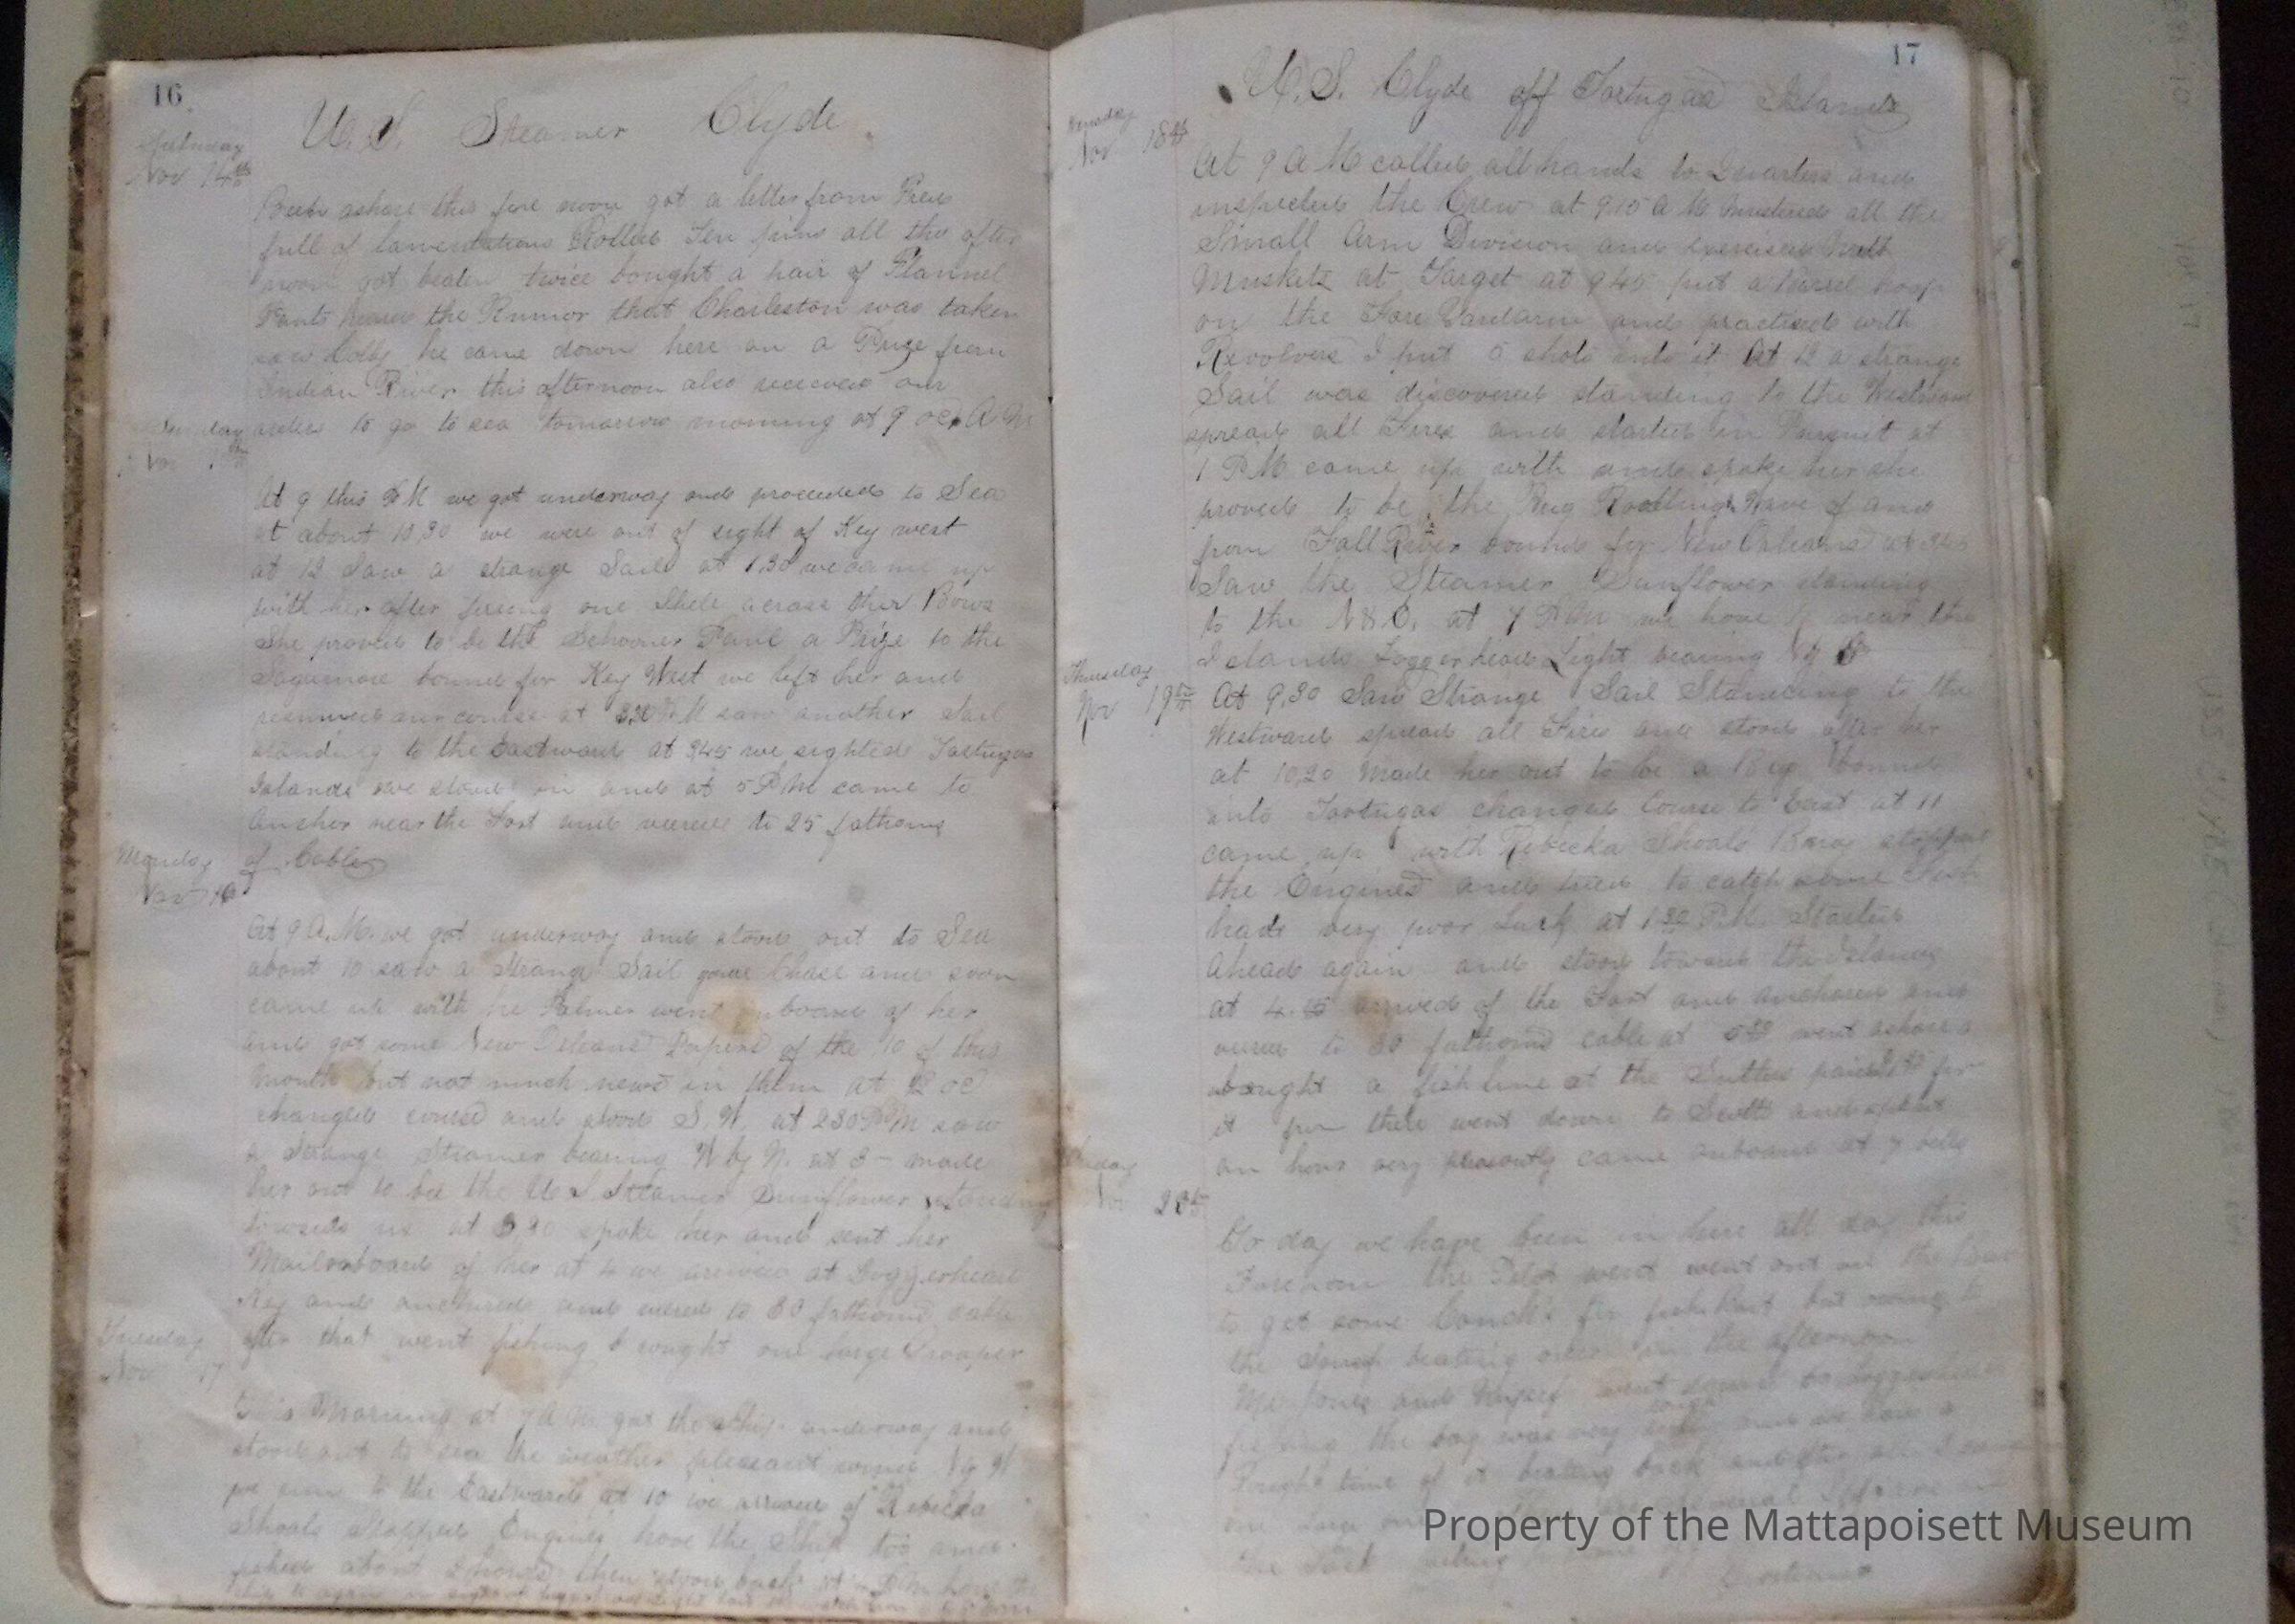 16
U.S. Steamer Clyde
Saturday
Nov 14th
Been ashore this fore noon got a letter from
full of lamentations Rolled Ten pins all the after
noon got beaten twice bought a pair of Flannel
Pants heard the Rumor that Charleston was taken
saw he came down here on a Prize from
Indian River this afternoon also received our
orders to go to sea tomorrow morning at 9 oc A M
Sunday
Nov
At 9 this AM we got underway and proceeded to Sea
at about 10,30 we were out of sight of Key west
at 12 Saw a strange Sail at 1,30 we came up
with her after firing one Shell across ther Bows
She proved to be the Schooner a Prize to the
Sagamore bound for Key West we left her and
resumed our course at P.M saw another Sail
standing to the Eastward at 345 we sighted Tortugas
Islands we stood in and at 5 PM came to
Anchor near the Fort and veered to 25 fathoms
of Cable
Monday
Nov 16
At 9 A.M. we got underway and stood out to Sea
about 10 saw a Strange Sail gave Chase and soon
came up with he Palmer went onboard of her
and got some New Orleans Papers of the 10 of this
Month but not much news in them at 12 oc
changed course and stood S.W. at 230 PM saw
a Strange Steamer bearing W by N. at 3 - made
her out to be the U S Steamer Sunflower standing
towards us at spoke her and sent her
Mail onboard of her at 4 we arrived at Loggerhead
Key and anchored and veered to 30 fathoms cable
after that went fishing & cought one large Grooper
Tuesday
Nov 17
This Morning at 7 A M got the ship underway and
stood out to sea the weather pleasant wind
we run to the Eastward at 10 we arrived of Rebecka
Shoals Stopped Engines hove the Ship too and
fished about 2 hours then stood back at PM hove the
17
U.S. Clyde off Tortugas Islands
Nov 18th
At 9 A M called all hands to Quarters and
inspected the Crew at 915 A M Mustered all the
Small Arm Division and Exercised with
Muskets at Target at 945 put a barrel hoop
on the Fore Yardarm and practised with
Revolvers I put 5 shots into it At 12 a strange
Sail was discovered standing to the Westward
spread all Fires and started in Pursuit at
1 PM came up with and spoke her she
proved to be the Brig Wave of and
from Fall River bound for New Orleans at 345
Saw the Steamer Sunflower standing
to the at 7 PM we hove near the
Islands Loggerhead Light bearing
Thursday
Nov 19th
At 9,30 Saw Strange Sail Standing to the
Westward spread all Fires and stood after her
at 10,20 Made her out to be a Brig bound
into Tortugas changed Course to East at 11
came up with Rebecka Shoals Buoy stopped
the Engines and tried to catch some Fish
had very poor Luck at 1 30 P.M. Started
Ahead again and stood toward the Islands
at 4.15 arrived of the Fort and anchored and
veered to 30 fathoms cable at went ashore &
bought a fish line at the Sutters paid for
it from there went down to Scotts and spent
an hour very pleasantly came onboard at 7 bells
Friday
Nov 20th
To day we have been in here all day this
Forenoon the Pilot went went out on the
to get some Conch's for fish Bait but owing to
the Surf beating over in the afternoon
Mr Jones and Myself went down to Loggerhead
fishing the bay was very and we had a
Tough time of it beating back and after all I
Property of the Mattapoisett Museum